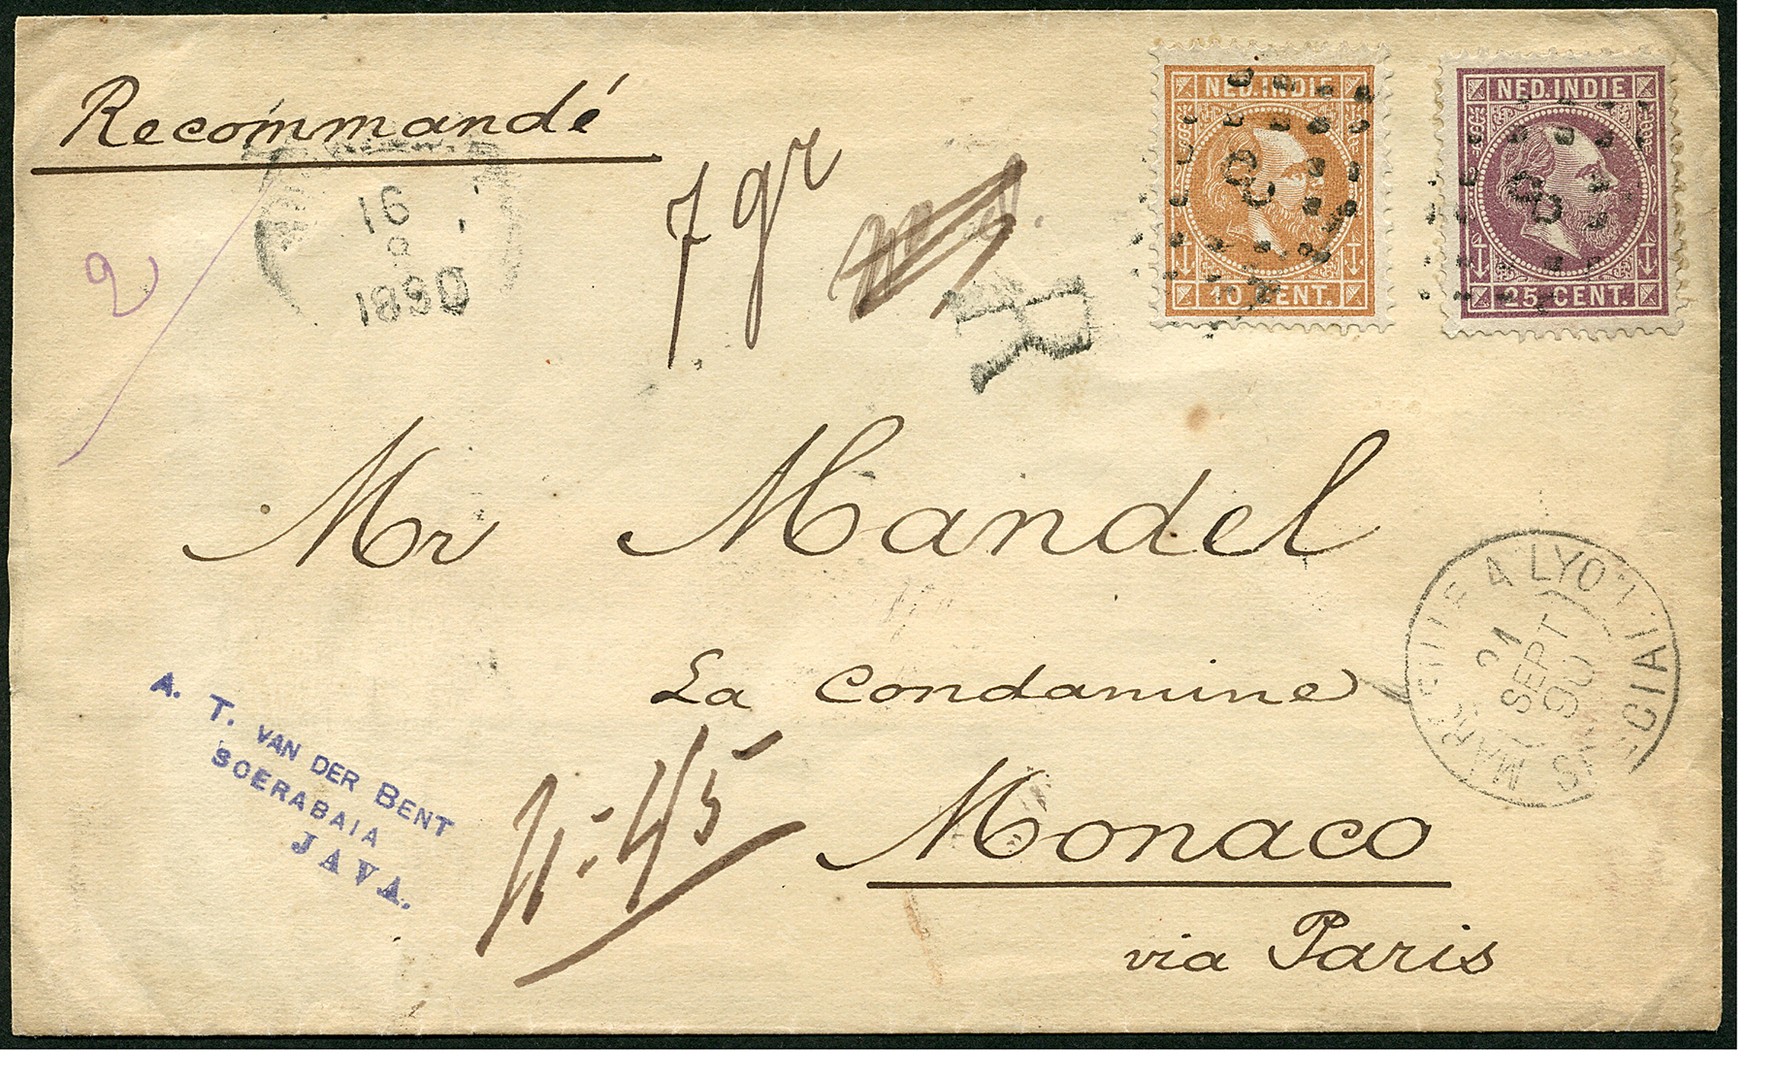 Recommandé
16
8
1890
2
7 gr
R
NED. INDIE
10 CENT.
NED. INDIE
25 CENT.
Mr Mandel
La Condamine
Monaco
via Paris
A. T. VAN DER BENT
SOERABAIA
JAVA.
A LYON
21
SEPT
90